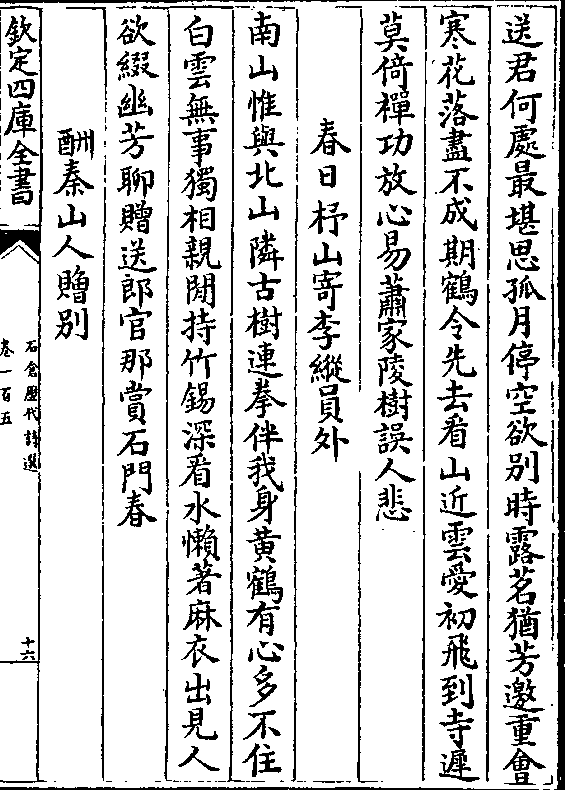 送君何處最堪思孤月停空欲别時露茗猶芳邀重會
寒花落盡不成期鶴令先去看山近雲愛初飛到寺遲
莫倚禪功放心易蕭家陵樹誤人悲
春日杼山寄李縱員外
南山惟與北山隣古樹連拳伴我身黄鶴有心多不住
白雲無事獨相親閒持竹錫深看水懶著麻衣出見人
欲綴幽芳聊贈送郎官那賞石門春
酬秦山人贈别
欽定四庫全書
石倉歴代詩選
卷一百五
十六